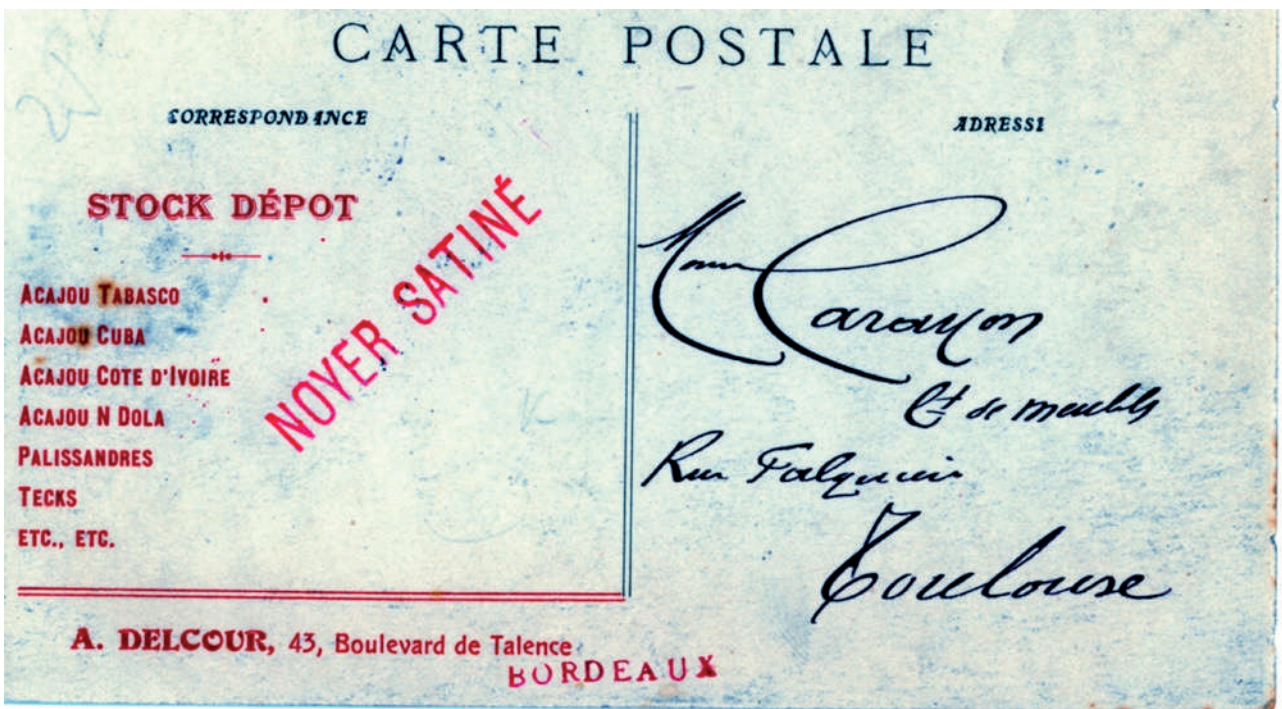 CARTE POSTALE
CORRESPONDANCE
STOCK DÉPOT
ACAJOU TABASCO
ACAJOU CUBA
ACAJOU COTE D'IVOIRE
ACAJOU N DOLA
PALISSANDRES
TECKS
ETC., ETC.
NOYER SATINÉ
A. DELCOUR, 43, Boulevard de Talence
BORDEAUX
ADRESSE
Carayon
de meubles
Rue
Toulouse